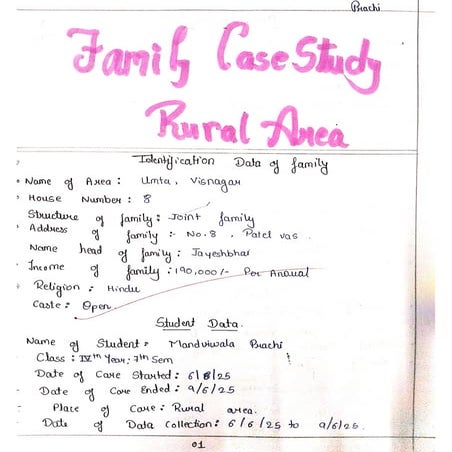 Prachi
Family Case Study
Rural Area
Identification Data of family
Name of Area : Umta, Visnagar
House Number : 8
Structure of family : Joint family
Address of family :- No. 8 , Patel vas .
Name head of family : Jayeshbhai
Income of family : 190,000/- Per Annual
Religion : Hindu
Caste : Open
Student Data.
Name of Student : Mandviwala Prachi
Class : IVth Year ; 7th Sem
Date of Care Started : 6/6/25
Date of Care Ended : 9/6/25
Place of Care : Rural area.
Date of Data Collection : 6/6/25 to 9/6/25.
01